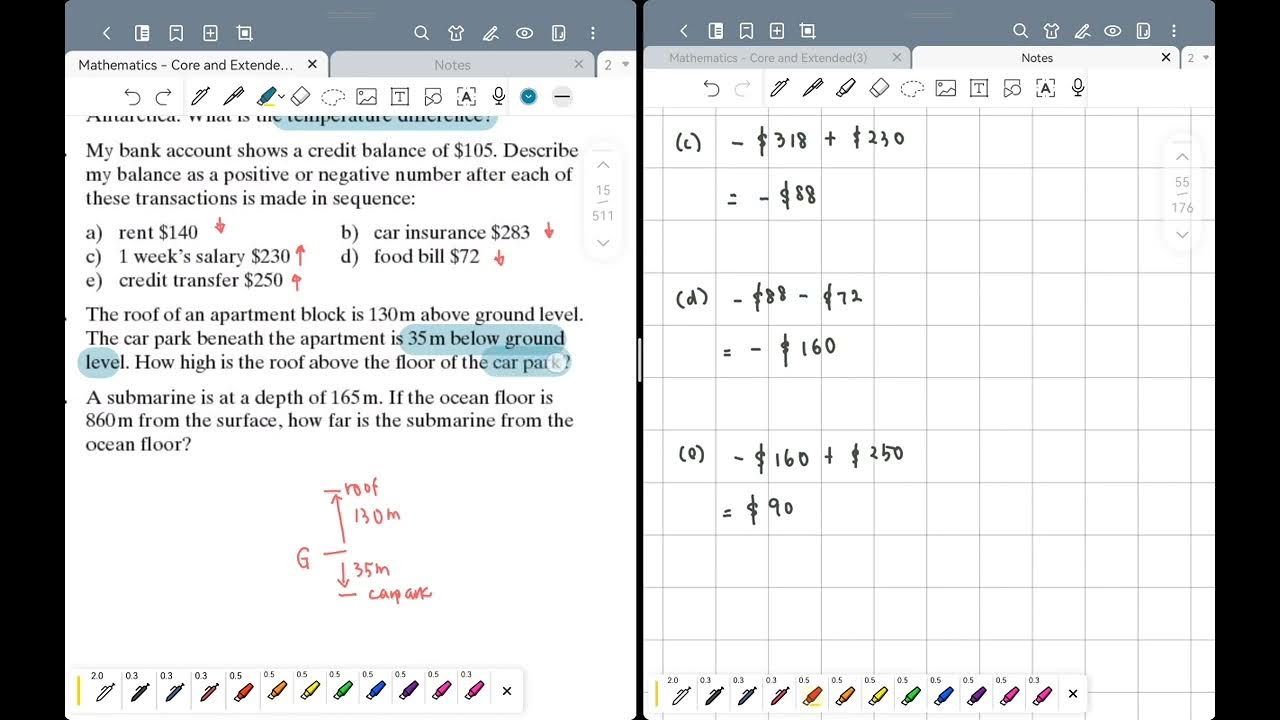 Mathematics - Core and Extende...
Notes
2
Antarctica. What is the temperature difference?
My bank account shows a credit balance of $105. Describe
my balance as a positive or negative number after each of
these transactions is made in sequence:
a) rent $140
b) car insurance $283
c) 1 week's salary $230
d) food bill $72
e) credit transfer $250
The roof of an apartment block is 130 m above ground level.
The car park beneath the apartment is 35 m below ground
level. How high is the roof above the floor of the car park?
A submarine is at a depth of 165 m. If the ocean floor is
860 m from the surface, how far is the submarine from the
ocean floor?
15
511
roof
130m
G
35m
carpark
2.0 0.3 0.3 0.3 0.5 0.5 0.5 0.5 0.5 0.5 0.5 0.3
Mathematics - Core and Extended(3)
Notes
2
(c) - $318 + $230
= - $88
(d) - $88 - $72
= - $160
(e) - $160 + $250
= $90
55
176
2.0 0.3 0.3 0.3 0.5 0.5 0.5 0.5 0.5 0.5 0.5 0.3